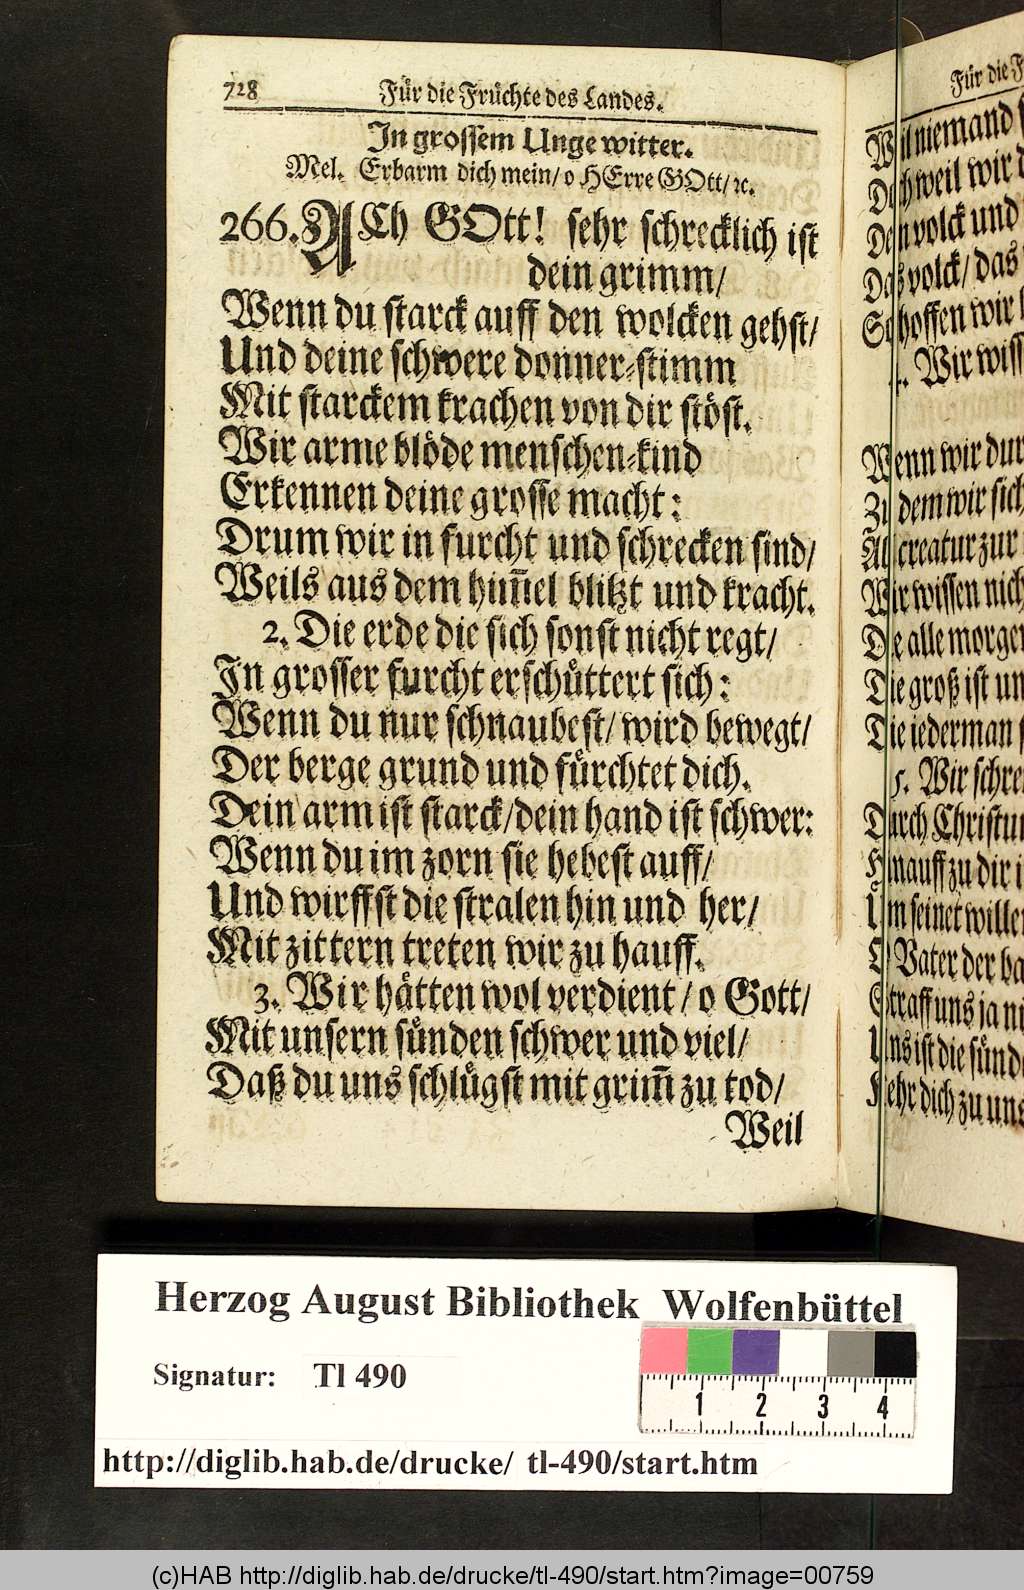 728 Für die Früchte des Landes.
In grossem Ungewitter.
Mel. Erbarm dich mein/ o HErre GOtt/ ꝛc.
266. ACh GOtt! sehr schrecklich ist
dein grimm/
Wenn du starck auff den wolcken gehst/
Und deine schwere donner-stimm
Mit starckem krachen von dir stöst.
Wir arme blöde menschen-kind
Erkennen deine grosse macht:
Drum wir in furcht und schrecken sind/
Weils aus dem him̄el blitzt und kracht.
2. Die erde die sich sonst nicht regt/
In grosser furcht erschüttert sich:
Wenn du nur schnaubest/ wird bewegt/
Der berge grund und fürchtet dich.
Dein arm ist starck/ dein hand ist schwer:
Wenn du im zorn sie hebest auff/
Und wirffst die stralen hin und her/
Mit zittern treten wir zu hauff.
3. Wir hätten wol verdient/ o Gott/
Mit unsern sünden schwer und viel/
Daß du uns schlügst mit grim̄ zu tod/
Weil
Für die
niemand
weil wir
volck und
volck/ das
hoffen wir
Wir
wir
dem wir
creatur zur
wissen
alle
groß ist
iederman
5. Wir
Durch
zu dir
seinet
Vater der
uns ja
ist die
dich zu uns
Herzog August Bibliothek Wolfenbüttel
Signatur: Tl 490
1 2 3 4
http://diglib.hab.de/drucke/ tl-490/start.htm
(c)HAB http://diglib.hab.de/drucke/tl-490/start.htm?image=00759